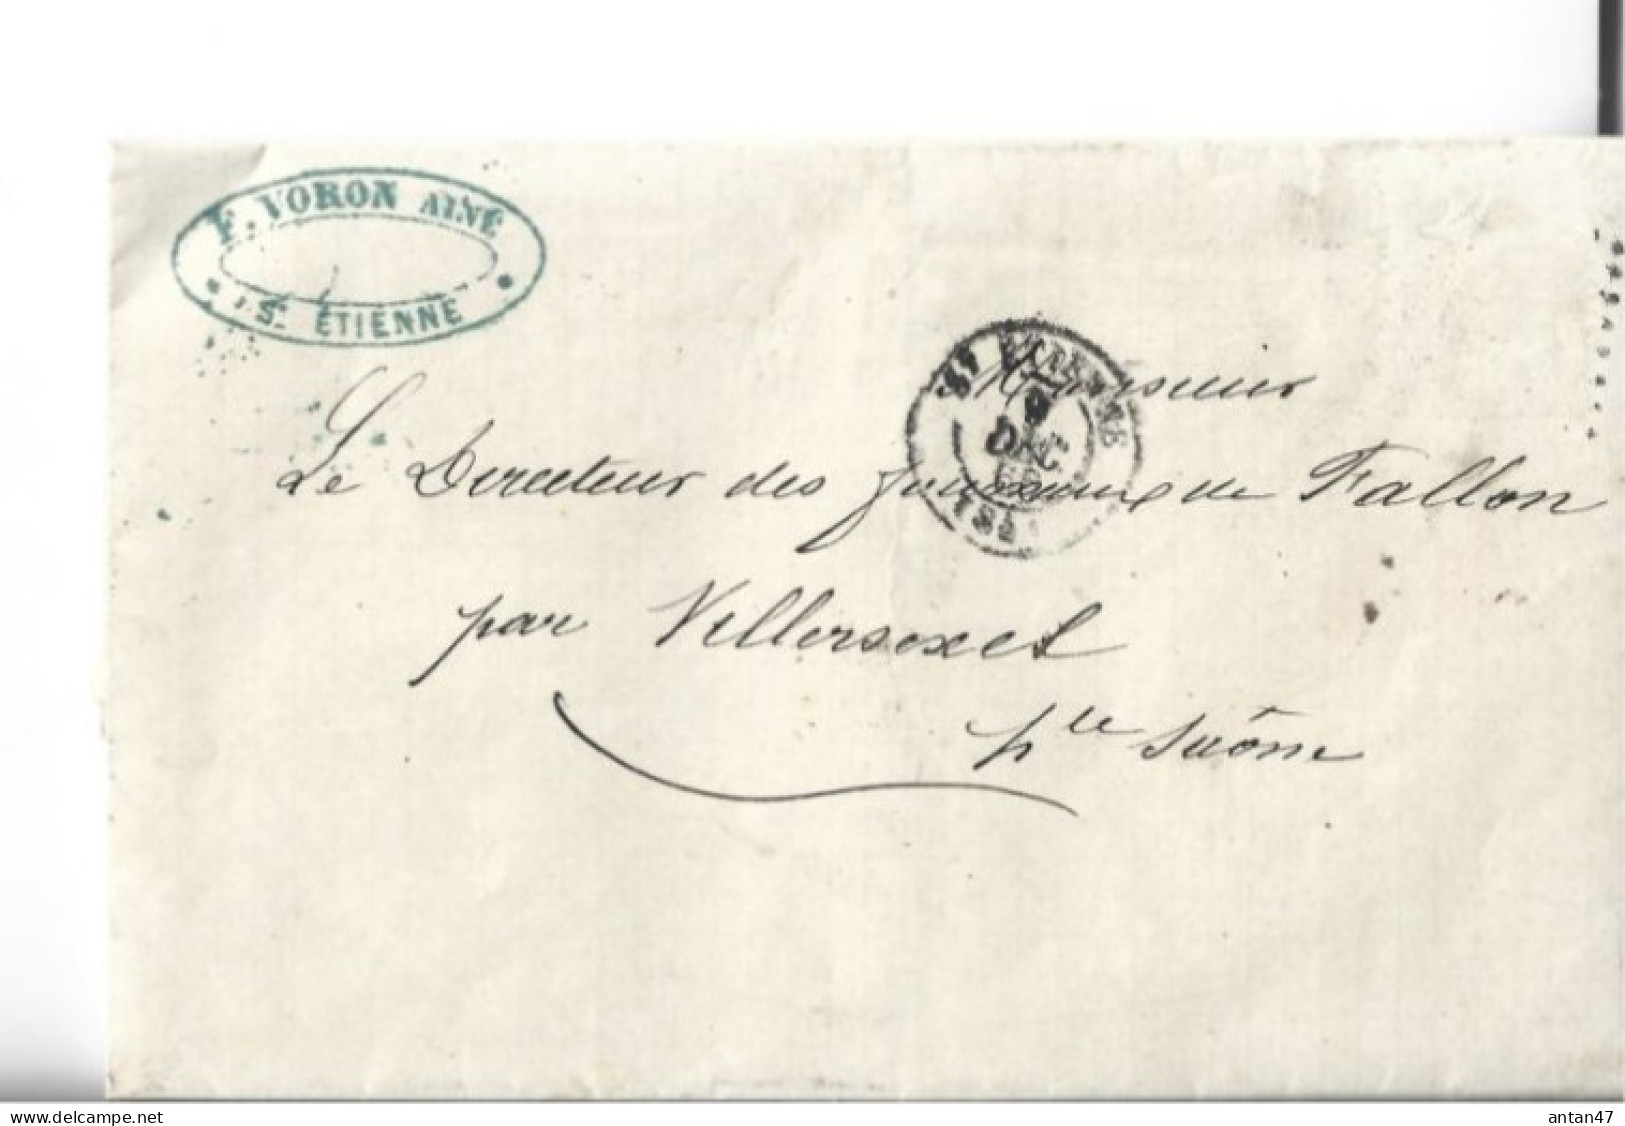 F. VORON AINÉ
St. ETIENNE
St ETIENNE
9
DEC
Monsieur
Le Directeur des fourneaux de Fallon
par Villersexel
hte Saône
delcampe.net
antan47